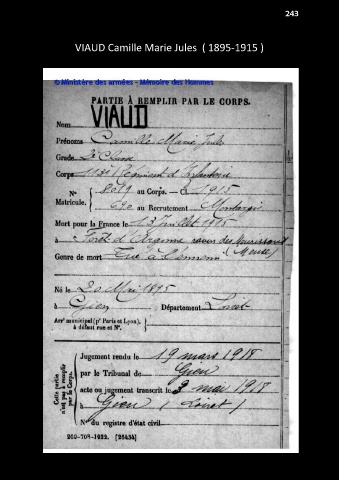 243
VIAUD Camille Marie Jules ( 1895-1915 )
© Ministère des armées - Mémoire des Hommes
PARTIE À REMPLIR PAR LE CORPS.
Nom VIAUD
Prénoms Camille Marie Jules
Grade 2e Classe
Corps 113e Régiment d'Infanterie
N° Matricule. { 8019 au Corps. — Cl. 1915
690 au Recrutement Montargis
Mort pour la France le 13 Juillet 1915
à Forêt d'Argonne ravin des Meurissons (Meuse)
Genre de mort Tué à l'ennemi
Né le 20 Mai 1895
à Gien Département Loiret
Arrt municipal (pr Paris et Lyon), à défaut rue et N°.
Cette partie n'est pas à remplir par le Corps.
Jugement rendu le 19 mars 1918
par le Tribunal de Gien
acte ou jugement transcrit le 3 mai 1918
à Gien (Loiret)
N° du registre d'état civil
260-708-1922. [26434]